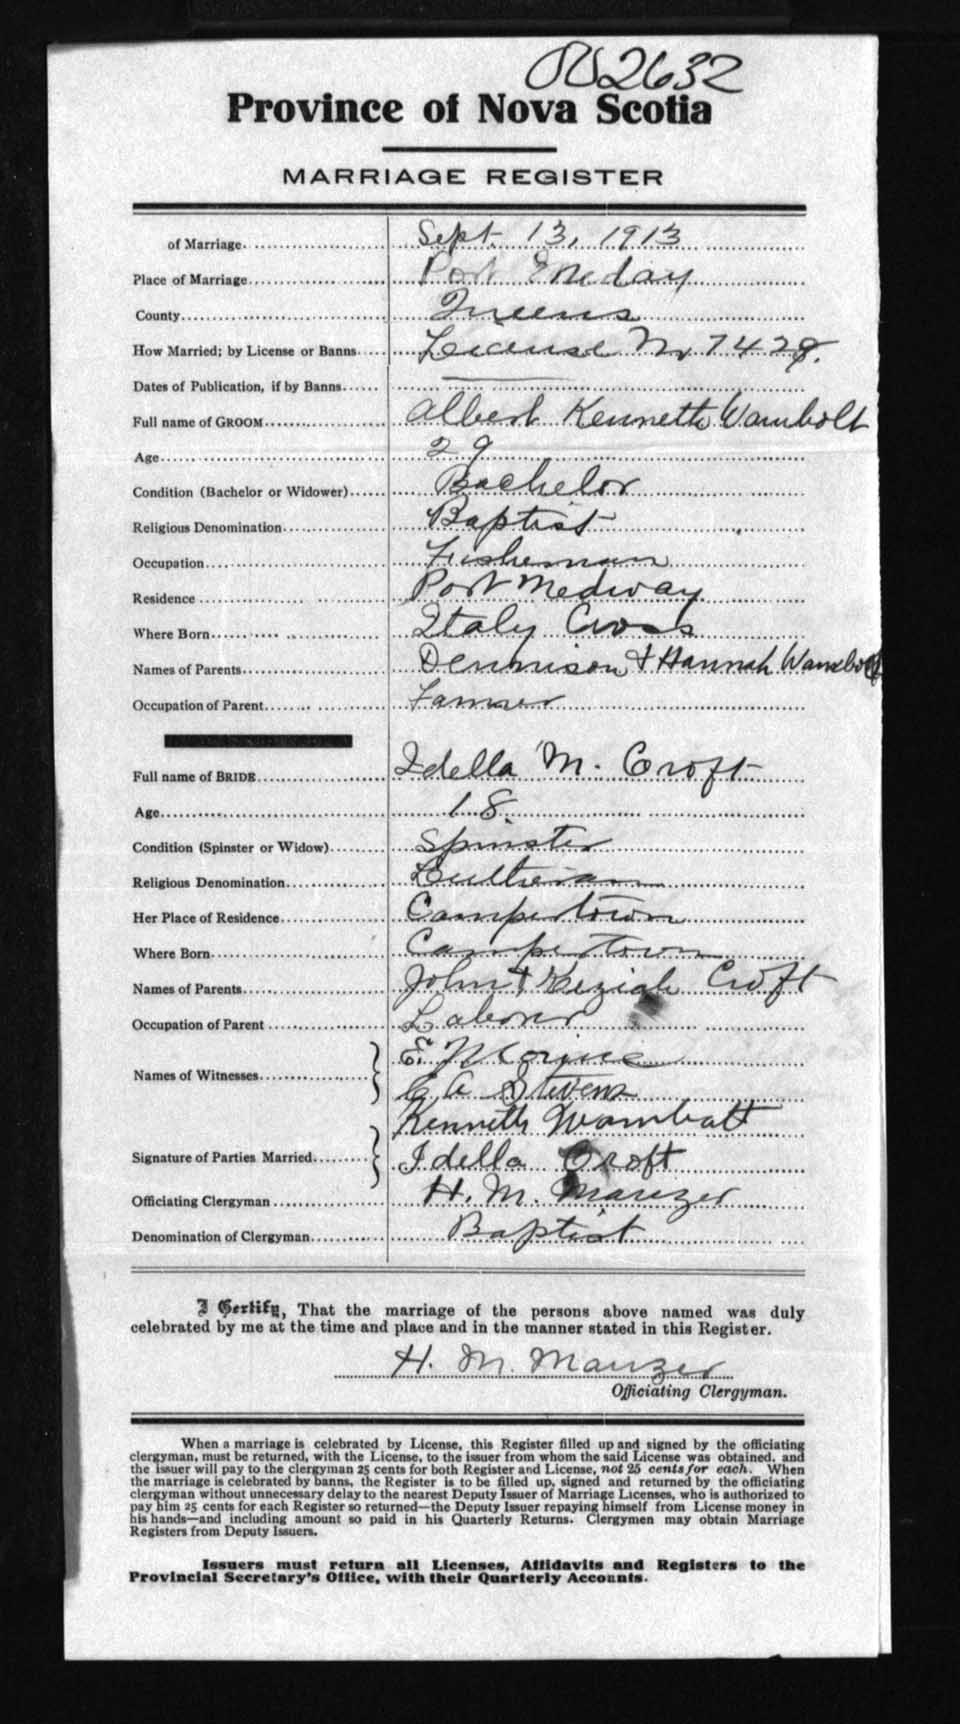 2632
Province of Nova Scotia
MARRIAGE REGISTER
of Marriage Sept. 13, 1913
Place of Marriage Port Medway
County Queens
How Married; by License or Banns License No 7429.
Dates of Publication, if by Banns
Full name of GROOM Albert Kenneth Wambolt
Age 29
Condition (Bachelor or Widower) Bachelor
Religious Denomination Baptist
Occupation Fisherman
Residence Port Medway
Where Born Italy Cross
Names of Parents Dennison & Hannah Wambolt
Occupation of Parent Farmer
Full name of BRIDE Idella M. Croft
Age 18
Condition (Spinster or Widow) Spinster
Religious Denomination Lutheran
Her Place of Residence Campertown
Where Born Campertown
Names of Parents John & Keziah Croft
Occupation of Parent Laborer
Names of Witnesses E.
C A Stevens
Kenneth Wambolt
Signature of Parties Married Idella Croft
Officiating Clergyman H. M. Manzer
Denomination of Clergyman Baptist
I Certify, That the marriage of the persons above named was duly
celebrated by me at the time and place and in the manner stated in this Register.
H. M. Manzer
Officiating Clergyman.
When a marriage is celebrated by License, this Register filled up and signed by the officiating
clergyman, must be returned, with the License, to the issuer from whom the said License was obtained, and
the issuer will pay to the clergyman 25 cents for both Register and License, not 25 cents for each. When
the marriage is celebrated by banns, the Register is to be filled up, signed and returned by the officiating
clergyman without unnecessary delay to the nearest Deputy Issuer of Marriage Licenses, who is authorized to
pay him 25 cents for each Register so returned—the Deputy Issuer repaying himself from License money in
his hands—and including amount so paid in his Quarterly Returns. Clergymen may obtain Marriage
Registers from Deputy Issuers.
Issuers must return all Licenses, Affidavits and Registers to the
Provincial Secretary's Office, with their Quarterly Accounts.